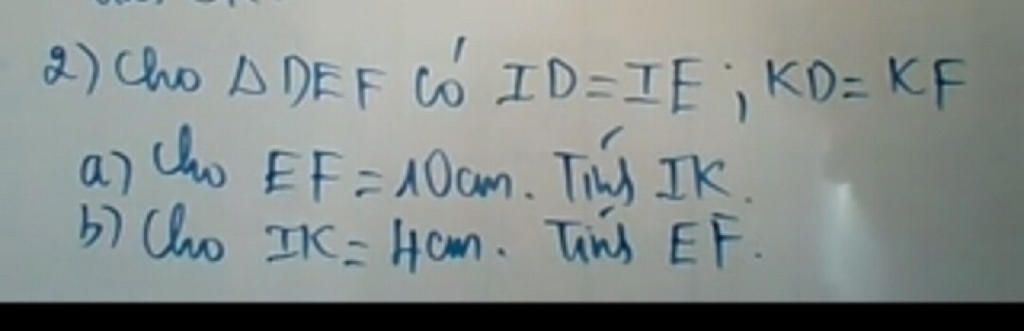 2) Cho Δ DEF có ID = IE ; KD = KF
a) Cho EF = 10cm. Tính IK.
b) Cho IK = 4cm. Tính EF.